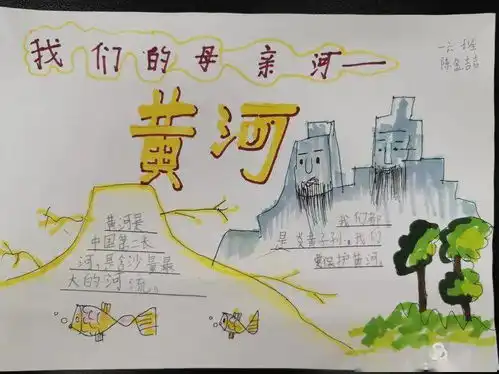 我们的母亲河—
黄河
黄河是
中国第二长
河,是含沙量最
大的河流。
我们都
是炎黄子孙。我们
要保护黄河。